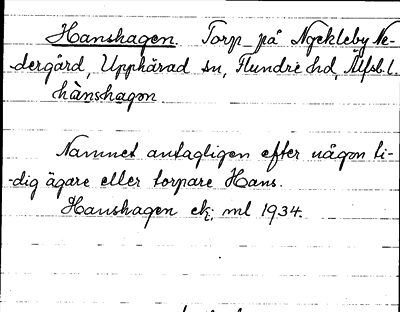 Hanshagen. Torp på Nyckleby Ne-
dergård, Upphärad sn, Flundre hd, Älfsb. l.
hànshagən
Namnet antagligen efter någon ti-
-dig ägare eller torpare Hans.
Hanshagen ek; ml 1934.